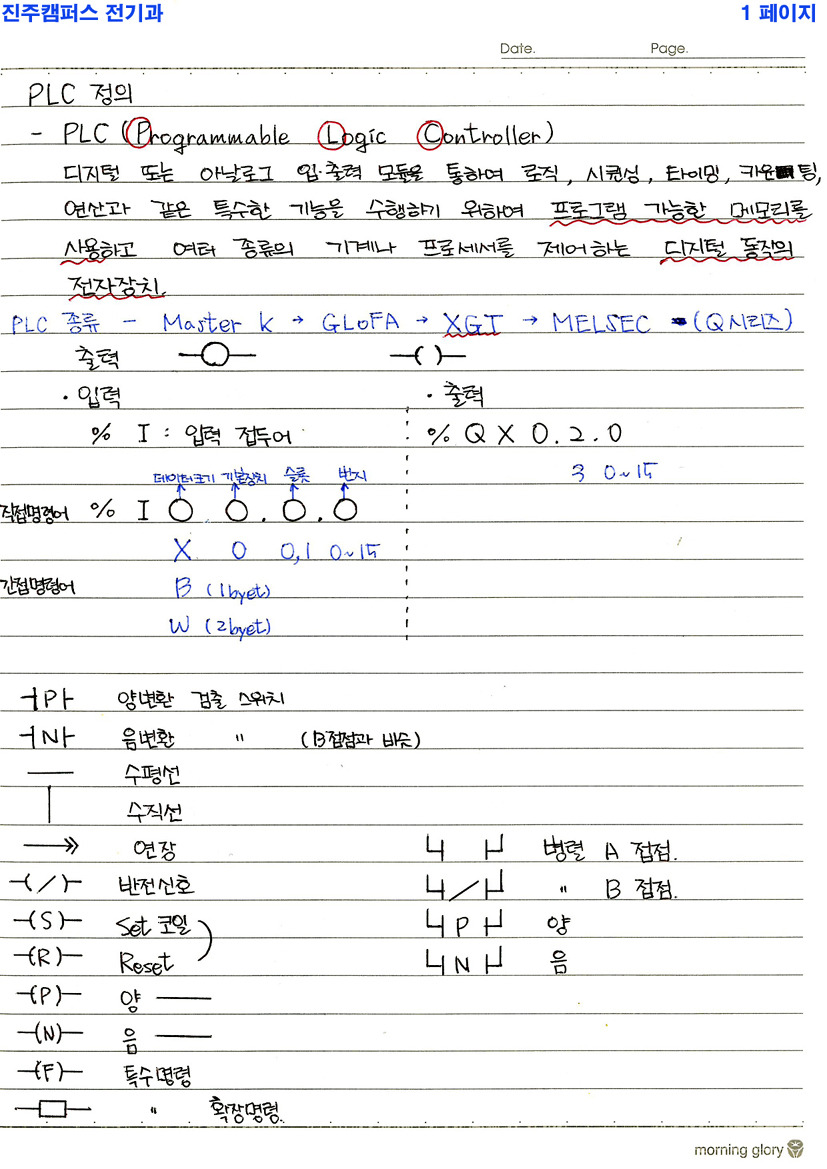 진주캠퍼스 전기과 1 페이지
Date. Page.
PLC 정의
- PLC (Programmable Logic Controller)
디지털 또는 아날로그 입·출력 모듈을 통하여 로직, 시퀀싱, 타이밍, 카운팅,
연산과 같은 특수한 기능을 수행하기 위하여 프로그램 가능한 메모리를
사용하고 여러 종류의 기계나 프로세서를 제어하는 디지털 동작의
전자장치.
PLC 종류 - Master K → GLOFA → XGT → MELSEC - (Q시리즈)
출력 ( )
· 입력 · 출력
% I : 입력 접두어 % Q X 0. 2. 0
데이터크기 기본장치 슬롯 번지 3 0~15
직접명령어 % I ○ ○ . ○ . ○
X 0 0,1 0~15
간접명령어 B (1byet)
W (2byet)
┤P├ 양변환 검출 스위치
┤N├ 음변환 〃 (B접점과 비슷)
수평선
수직선
연장 병렬 A 접점.
( / ) 반전신호 / 〃 B 접점.
(S) Set 코일 P 양
(R) Reset N 음
(P) 양 ―
(N) 음 ―
(F) 특수명령
〃 확장명령.
morning glory